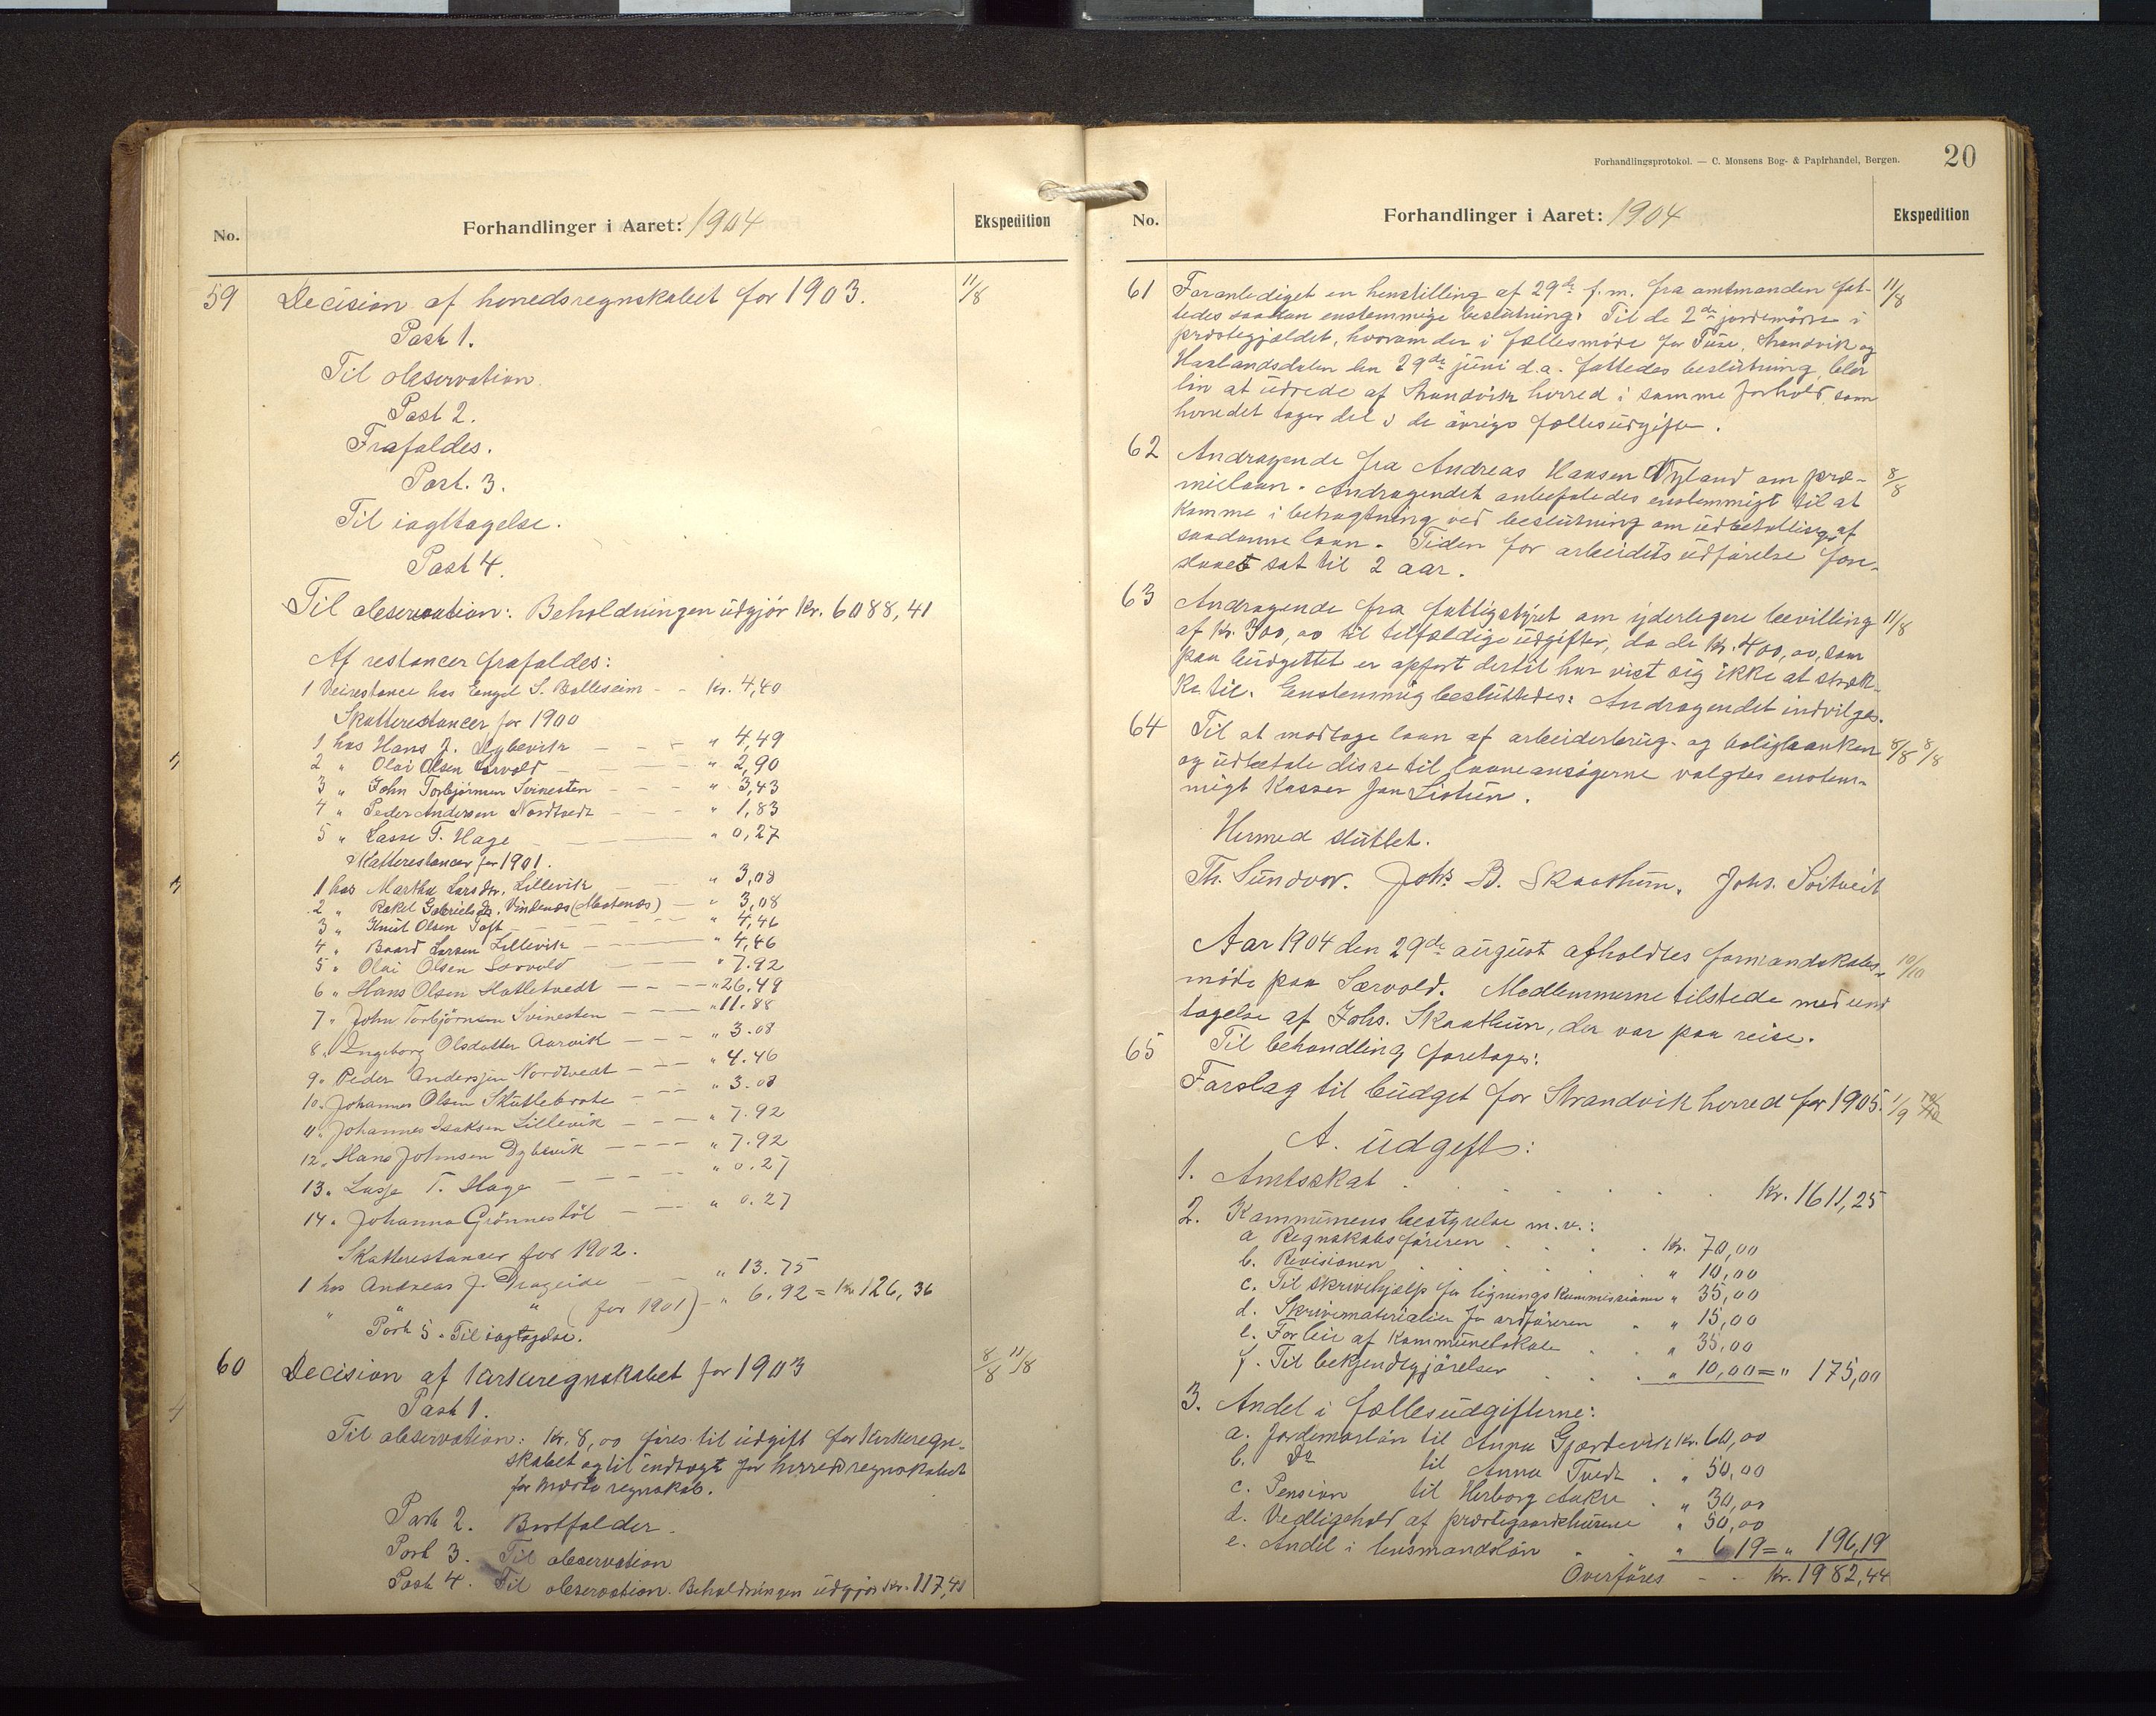 No.
Forhandlinger i Aaret: 1904
Ekspedition
59 Decision af herredsregnskabet for 1903. 11/8
Post 1.
Til observation.
Post 2.
Frafaldes.
Post. 3.
Til iagttagelse.
Post 4.
Til observation: Beholdningen udgjør Kr. 6088,41
Af restancer frafaldes:
1 Veirestance hos Engel S. Balleseim - - Kr. 4,40
Skatterestancer for 1900
1 hos Hans J. Dybevik - - - " 4,49
2 " Olai Olsen Sørvold - - - " 2,90
3 " John Torbjørnsen Svinesten - - - " 3,43
4 " Peder Andersen Nordtvedt - - " 1,83
5 " Lasse T. Hage - - " 0,27
Skatterestancer for 1901.
1 hos Martha Larsdtr. Lillevik - - " 3,08
2 " Rakel Gabrielsdtr. Vindenes ( ) - " 3,08
3 " Knut Olsen Toft - - - - " 4,46
4 " Baard Larsen Lillevik - - - " 4,46
5 " Olai Olsen Sørvold - - - " 7.92
6 " Hans Olsen Hatletvedt - - - - " 26.49
7 " John Torbjörnsen Svinesten - - - - " 11.88
8 " Ingeborg Olsdatter Aarvik - - - " 3.08
9 " Peder Anderssen Nordtvedt - - - " 4.46
10 " Johannes Olsen Skutlebrote - - - " 3.08
11 " Johannes Isaksen Lillevik - - - - " 7.92
12 " Hans Johnsen Dybevik - - - - " 7.92
13 " Lasse T. Hage - - - - " 0.27
14 " Johanna Grönnestöl - - - " 0.27
Skatterestancer for 1902.
1 hos Andreas J. Drageide - - " 13.75
" " " (for 1901) - " 6.92 = Kr 126,36
Post 5. Til iagtagelse.
60 Decision af kirkeregnskabet for 1903 8/8 11/8
Post 1.
Til observation: Kr. 8,00 føres til udgift for Kirkeregn-
skabet og til indtægt for herredsregnskabet
for næste regnskab.
Post 2. Bortfalder.
Post 3. Til observation
Post 4. Til observation. Beholdningen udgjør Kr. 117,41
Forhandlingsprotokol. — C. Monsens Bog- & Papirhandel, Bergen. 20
No.
Forhandlinger i Aaret: 1904
Ekspedition
61 Foranlediget en henstilling af 29de f.m. fra amtmanden fat- 11/8
tedes saadan enstemmige beslutning: Til de 2de jordemødre i
præstegjældet, hvorom der i fællesmøde for Fuse, Strandvik og
Haalandsdalen den 29de juni d.a. fattedes beslutning, blir
løn at udrede af Strandvik herred i samme forhold, som
herredet tager del i de øvrige fællesudgifter.
62 Andragende fra Andreas Hansen Nyland om præ- 8/8
mielaan. Andragendet anbefaledes enstemmigt til at
komme i betragtning ved beslutning om udbetalling af
saadanne laan. Tiden for arbeidets udførelse fore-
slaaet sat til 2 aar.
63 Andragende fra fattigstyret om yderlegere bevilling 11/8
af Kr. 300,00 til tilfældige udgifter, da de Kr. 400,00, som
paa budgettet er opført dertil har vist sig ikke at stræk-
ke til. Enstemmig besluttedes: Andragendet indvilges.
64 Til at modtage laan af arbeiderbrug- og boligbanken 8/8 8/8
og udbetale disse til laaneansøgerne valgtes enstem-
migt Kasser Jon Listun.
Hermed sluttet.
Th. Sundvor. Johs. B. Skaathun. Johs. Soitveit
Aar 1904 den 29de august afholdtes formandskabs- 10/10
møde paa Særvold. Medlemmerne tilstede med und
tagelse af Johs. Skaathun, der var paa reise.
65 Til behandling foretoges:
Forslag til budget for Strandvik herred for 1905. 1/9
A. udgift:
1. Amtsskat . . . . . . Kr. 1611,25
2. Kommunens bestyrelse m.v.:
a Regnskabsføreren . . . . Kr. 70,00
b. Revisionen . . . . . " 10,00
c. Til skrivehjælp for ligningskommissionen " 35,00
d. Skrivematerialier for ordføreren . " 15,00
e. For leie af Kommunelokale . . " 35,00
f. Til bekjendtgjørelser . . . " 10,00 = " 175,00
3. Andel i fællesudgifterne:
a. Jordemorløn til Anna Gjærdevik Kr. 60,00
b. Do til Anna Tvedt . " 50,00
c. Pension til Herborg Aakre . " 30,00
d. Vedligehold af præstegaardshusene " 50,00
e. Andel i lensmandsløn . . " 6,19 = " 196,19
Overføres - - Kr. 1982,44